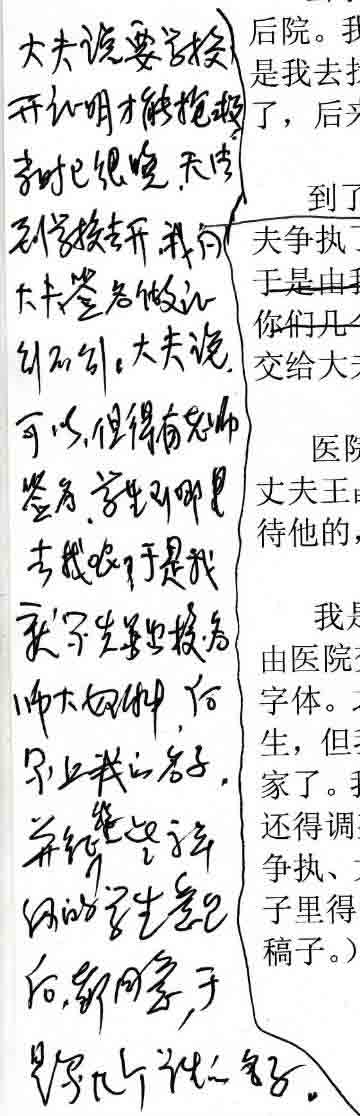 大夫说要学校
开证明才能抢救,
当时已很晚,无法
到学校去开,我向
大夫签名做证
行不行。大夫说,
可以,但得有老师
签名,学生到哪里
去找呢?于是我
就写
师大女附中,
写上我的名子。
并
的学生
后,都同意,于
是写几个学生的名子。
后院。我
是我去找
了,后来
到了
夫争执了
于是由我
你们几个
交给大夫
医院
丈夫王
待他的,
我是
由医院
字体。
生,但我
家了。我
还得调
争执、
子里得
稿子。)